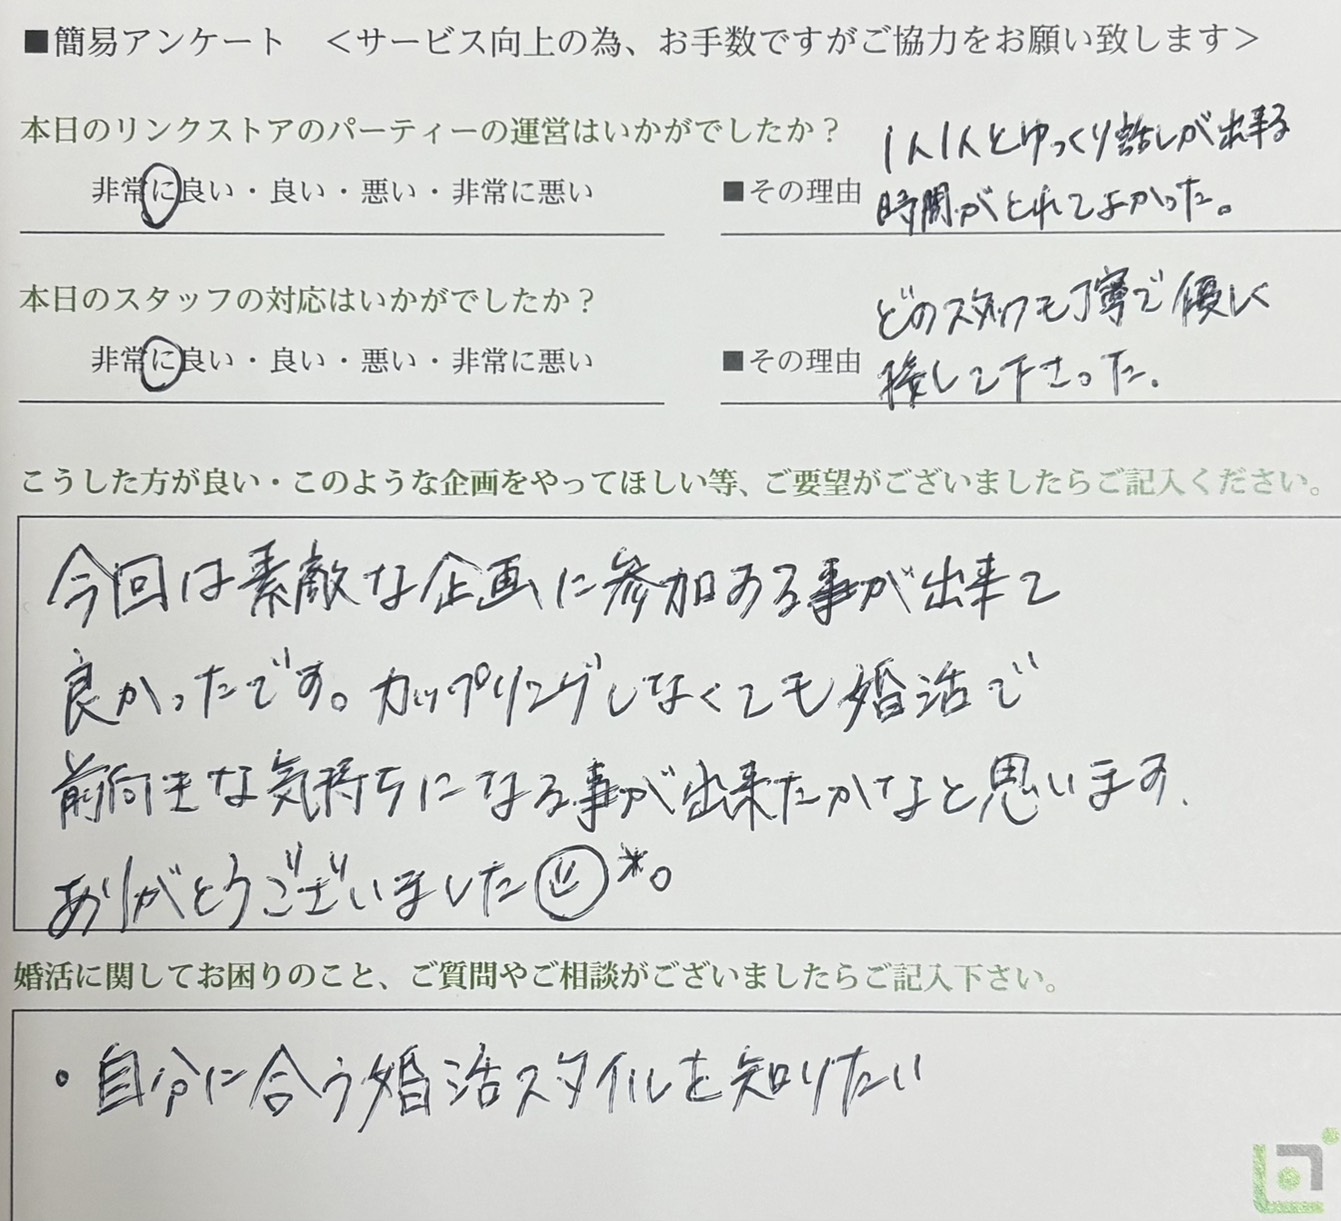 ■簡易アンケート ＜サービス向上の為、お手数ですがご協力をお願い致します＞
本日のリンクストアのパーティーの運営はいかがでしたか？
非常に良い・良い・悪い・非常に悪い
■その理由
1人1人とゆっくり話しが出来る
時間がとれてよかった。
本日のスタッフの対応はいかがでしたか？
非常に良い・良い・悪い・非常に悪い
■その理由
どのスタッフも丁寧で優しく
接して下さった。
こうした方が良い・このような企画をやってほしい等、ご要望がございましたらご記入ください。
今回は素敵な企画に参加する事が出来て
良かったです。カップリングしなくても婚活で
前向きな気持ちになる事が出来たかなと思います.
ありがとうございました *。
婚活に関してお困りのこと、ご質問やご相談がございましたらご記入下さい。
・自分に合う婚活スタイルを知りたい